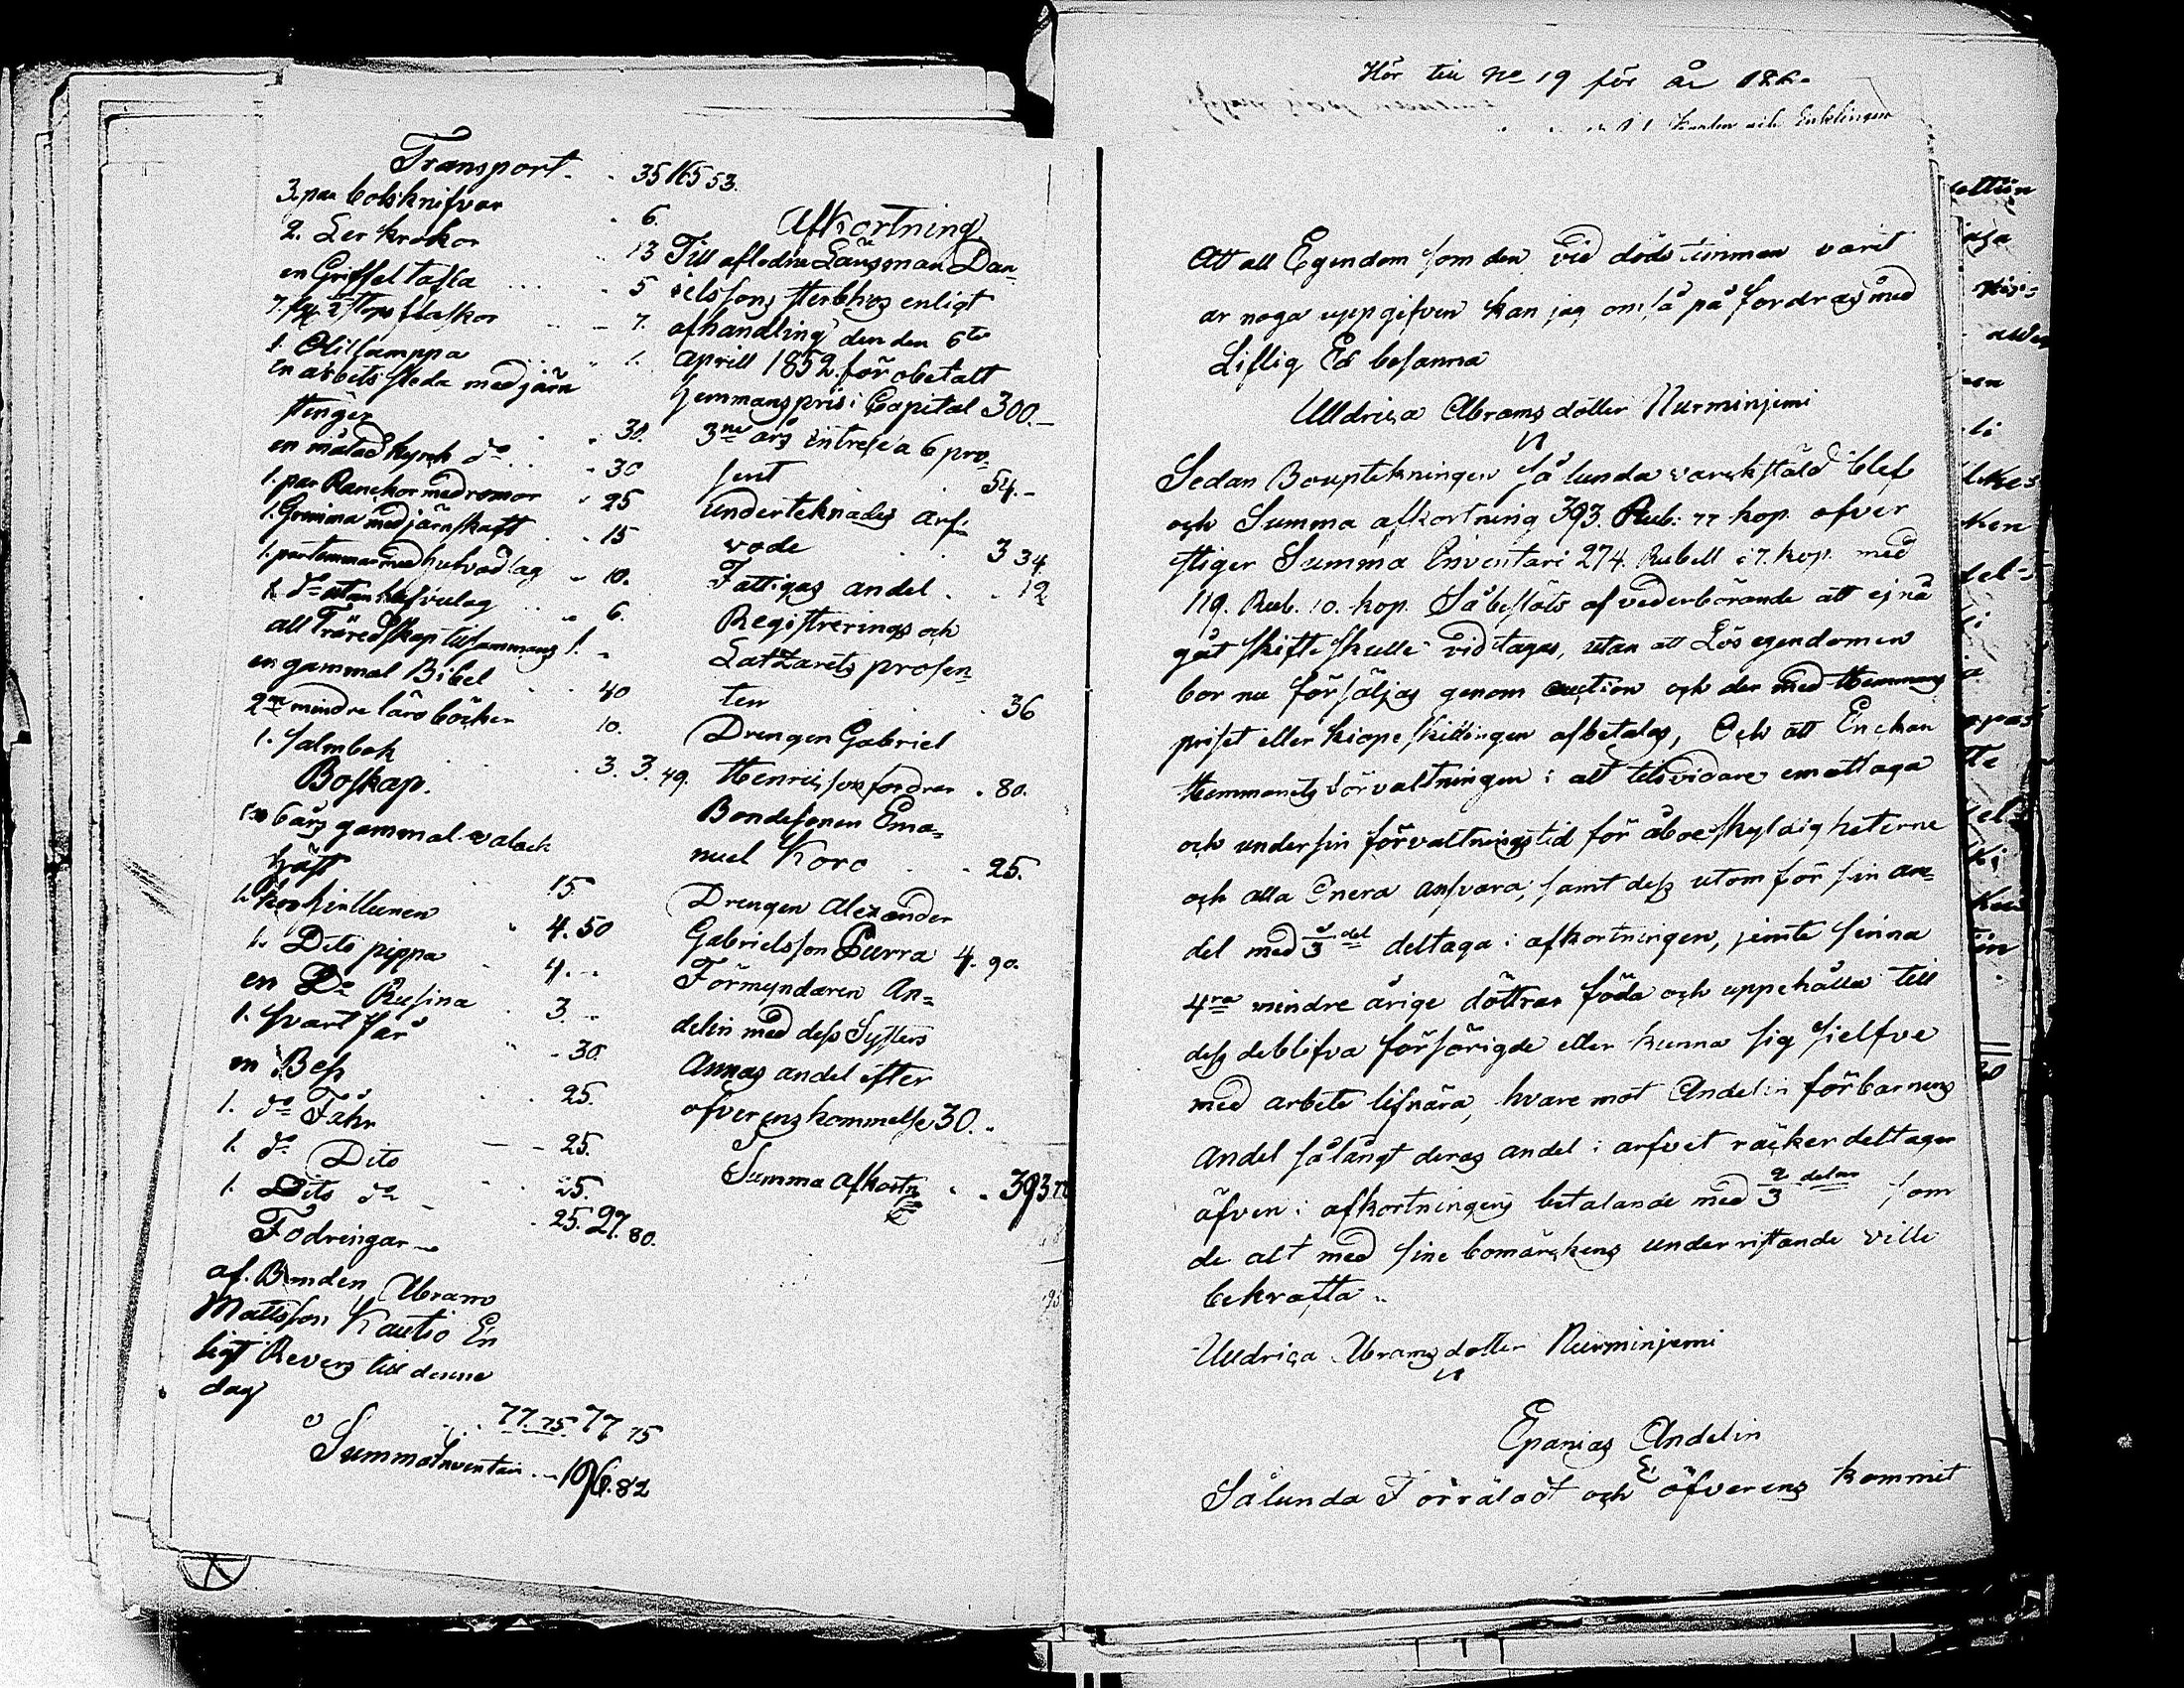 Transport. 35 165 53.
3. par bolsknifvar . 6.
2. Ler krokor .. 13
en Griffel tafla ... . 5
7. st. 2 stops flaskor .. - 7.
1. Olilamppa .. . 1.
en arbets släda med järn
stenger . . 30.
en målad kyrck do . . . 30
1. par Ranckor med remar . 25
1. Grimma med järnskaft . . 15
1. par tömmar med hufvudlag . 10.
1. do utan hufvulag .. . 6.
all Träredskap tilsammans 1. -
en gammal Bibel . . 40
2ne mindre läro böcker 10.
1. Salmbok . . 3. 3. 49.
Boskap.
en 6 års gammal valack
häst . 15
1. ko hintlunen . 4. 50
1. Dito pippa . 4. -
en Do Rusina . 3. -
1. svart får . . 30.
en Bess . . 25.
1. do Fåhr — - 25.
1. do Dito . . 25.
1. Dito do - . 25. 27. 80.
Fodringar
af Bonden Abram
Mattsson Kautio En
ligt Revers till denne
dag . . . 77. 75. 77 75
Summa Inventari . . 196. 82
Afkortning
Till afledne Länsman Dan=
ielssons sterbhus enligt
afhandling den den 6te
Aprill 1852. för obetalt
hemmans pris i Capital 300. -
3ne års intrese a 6 pro=
sent 54. -
underteknades arf=
vode . . 3 34
Fattigas andel . . 12
Registrerings och
Latzarets prosen=
ten . . 36
Drengen Gabriel
Henricsson fordrar . 80.
Bondesonen Ema=
nuel Koro . . 25.
Drengen Alexander
Gabrielsson Purra 4. 90.
Förmyndaren An=
delin med dess Systers
Annas andel efter
öfverenskommelse 30. .
Summa afkortn . . 393 77
Hör till No 19 för år 186
Att all Egendom som den vid döds timman varit
är noga uppgifven kan jag om så på fordras med
Liflig Ed besanna
Ulldrica Abrams dotter Nurminjemi
Sedan Bouptekningen så lunda värckstäld blef
och Summa afkortning 393. Rub: 77 kop. öfver
stiger Summa Inventari 274. Rubell 67. kop. med
119. Rub. 10. kop. Så beslöts af vederbörande att ej nå
got skifte skulle vid tagas, utan att Lös egendomen
bör nu försäljas genom auction och der med Hemmans
priset eller kiöpe skillingen afbetalas, Och att Enckan
Hemmanets förvaltningen i alt tilsvidare emottaga
och under sin förvaltningstid för åboe skyldigheterne
och alla Onera ansvara, samt dess utom för sin an=
del med 1/3 del deltaga i afkortningen, jemte sinna
4ra mindre årige döttrar föda och uppehålla till
dess de blifva försörigde eller kunna sig sielfve
med arbete lifnära, hvare mot Andelin för barnens
andel sålångt deras andel i arfvet räcker deltager
äfven i afkortningens betalande med 2/3 delar som
de alt med sine bomärckens underristande ville
bekräfta ..
Ulldrica Abrams dotter Nurminjemi
Epanias Andelin
Sålunda Förrätadt och öfverens kommit